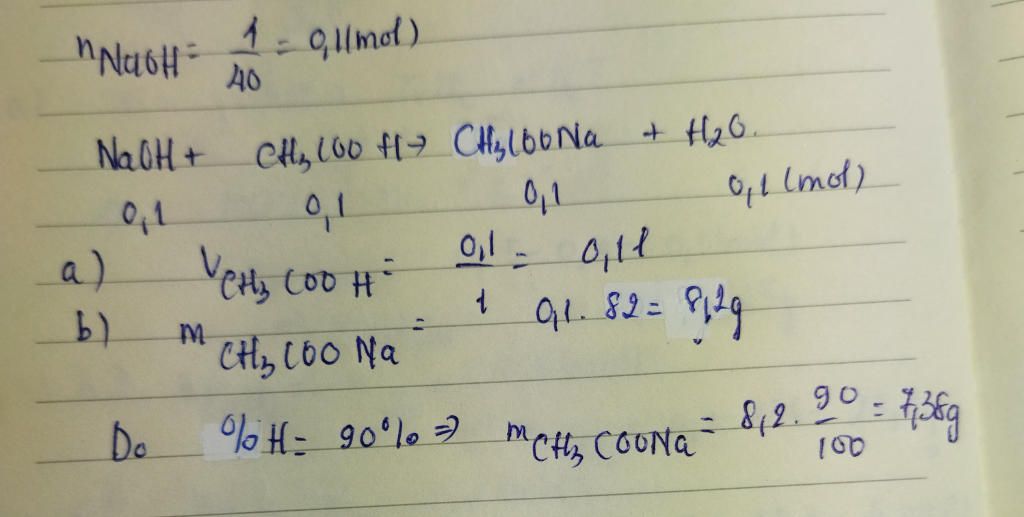 nNaOH = 1/40 = 0,1(mol)
NaOH + CH3COOH → CH3COONa + H2O.
0,1 0,1 0,1 0,1 (mol)
a) VCH3COOH = 0,1/1 = 0,1l
b) mCH3COONa = 0,1. 82 = 8,2g
Do %H = 90% ⇒ mCH3COONa = 8,2. 90/100 = 7,38g